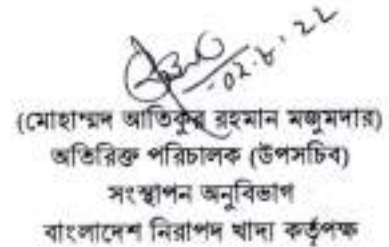 ০২.৮.২২
(মোহাম্মদ আতিকুর রহমান মজুমদার)
অতিরিক্ত পরিচালক (উপসচিব)
সংস্থাপন অনুবিভাগ
বাংলাদেশ নিরাপদ খাদ্য কর্তৃপক্ষ